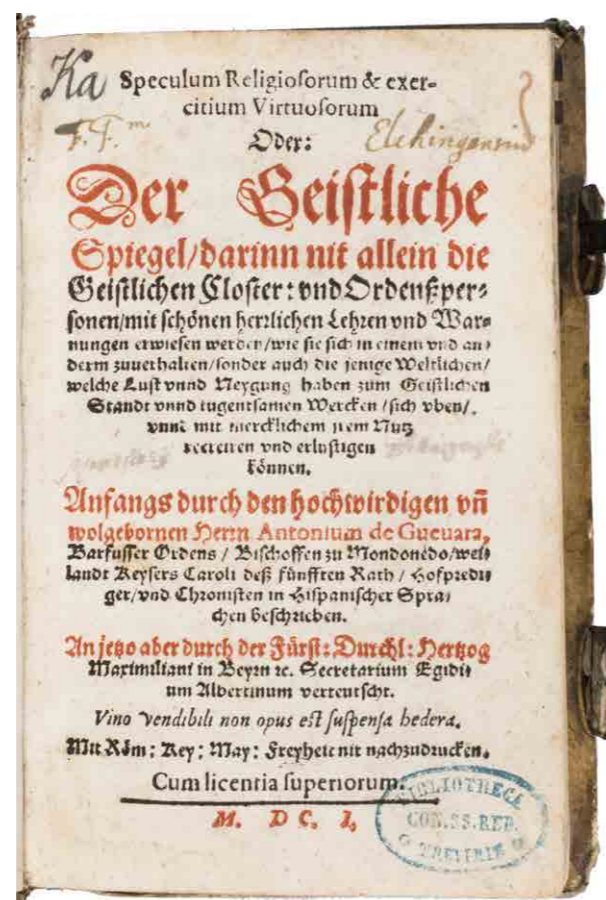 Ka
Speculum Religiosorum & exer-
citium Virtuosorum
F. F.m
Elchingensis
Oder:
Der Geistliche
Spiegel/darinn nit allein die
Geistlichen Closter: vnd Ordenßper-
sonen/mit schönen herrlichen Lehren vnd War-
nungen erwiesen werden/wie sie sich in einem vnd an-
derm zuuerhalten/sonder auch die jenige Weltlichen/
welche Lust vnnd Neygung haben zum Geistlichen
Standt vnnd tugentsamen Wercken /sich vben/
vnnd mit mercklichem jrem Nutz
recreiren vnd erlustigen
können.
Anfangs durch den hochwirdigen vñ
wolgebornen Herrn Antonium de Gueuara,
Barfusser Ordens / Bischoffen zu Mondonedo/wei-
landt Keysers Caroli deß fünfften Rath / Hofpredi-
ger/vnd Chronisten in Hispanischer Spra-
chen beschrieben.
An jetzo aber durch der Fürst: Durchl: Hertzog
Maximiliani in Beyrn ꝛc. Secretarium Egidi-
um Albertinum verteutscht.
Vino vendibili non opus est suspensa hedera.
Mit Röm: Key: May: Freyheit nit nachzudrucken.
Cum licentia superiorum.
M. D C. I.
BIBLIOTHECA
CON. SS. RED.
TREVIRIS